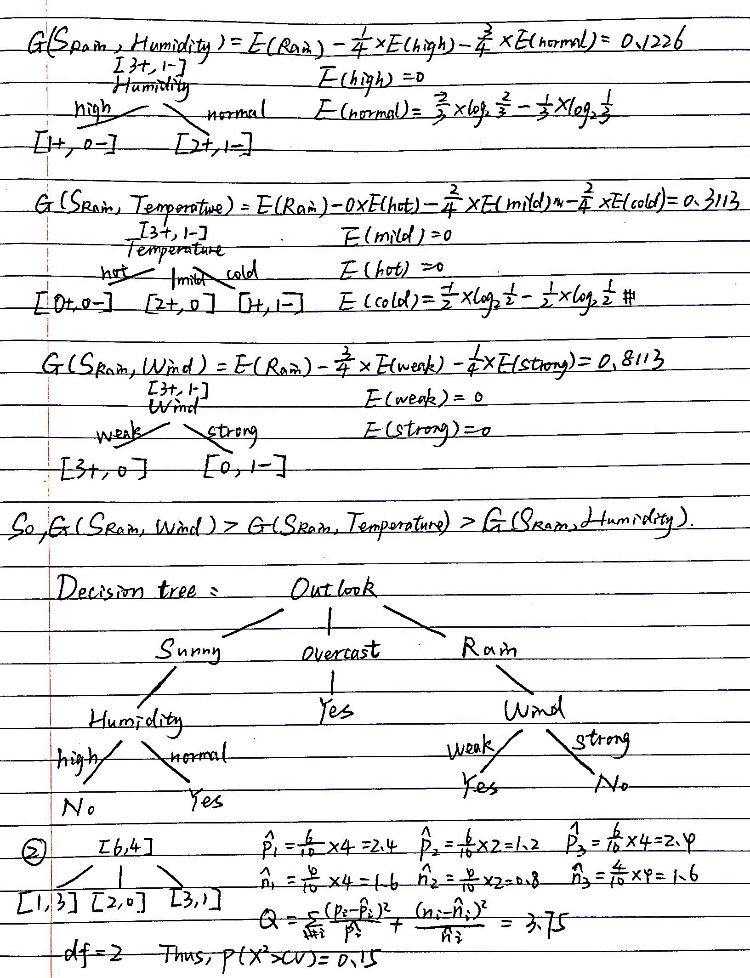 G(SRain, Humidity) = E(Rain) - 1/4 × E(high) - 3/4 × E(normal) = 0.1226
[3+, 1-] E(high) = 0
Humidity
high normal E(normal) = 2/3 × log2 2/3 - 1/3 × log2 1/3
[1+, 0-] [2+, 1-]
G(SRain, Temperature) = E(Rain) - 0×E(hot) - 2/4 × E(mild) - 2/4 × E(cold) = 0.3113
[3+, 1-] E(mild) = 0
Temperature
hot mild cold E(hot) = 0
[0+, 0-] [2+, 0] [1+, 1-] E(cold) = -1/2 × log2 1/2 - 1/2 × log2 1/2 #
G(SRain, Wind) = E(Rain) - 3/4 × E(weak) - 1/4 × E(strong) = 0.8113
[3+, 1-] E(weak) = 0
Wind
weak strong E(strong) = 0
[3+, 0] [0, 1-]
So, G(SRain, Wind) > G(SRain, Temperature) > G(SRain, Humidity).
Decision tree: Outlook
Sunny overcast Rain
Humidity Yes Wind
high normal weak strong
No Yes Yes No
② [6,4] p̂1 = 6/10 × 4 = 2.4 p̂2 = 6/10 × 2 = 1.2 p̂3 = 6/10 × 4 = 2.4
[1,3] [2,0] [3,1] n̂1 = 4/10 × 4 = 1.6 n̂2 = 4/10 × 2 = 0.8 n̂3 = 4/10 × 4 = 1.6
Q = Σ (pi - p̂i)²/p̂i + (ni - n̂i)²/n̂i = 3.75
df = 2 Thus, p(X² > CV) = 0.15